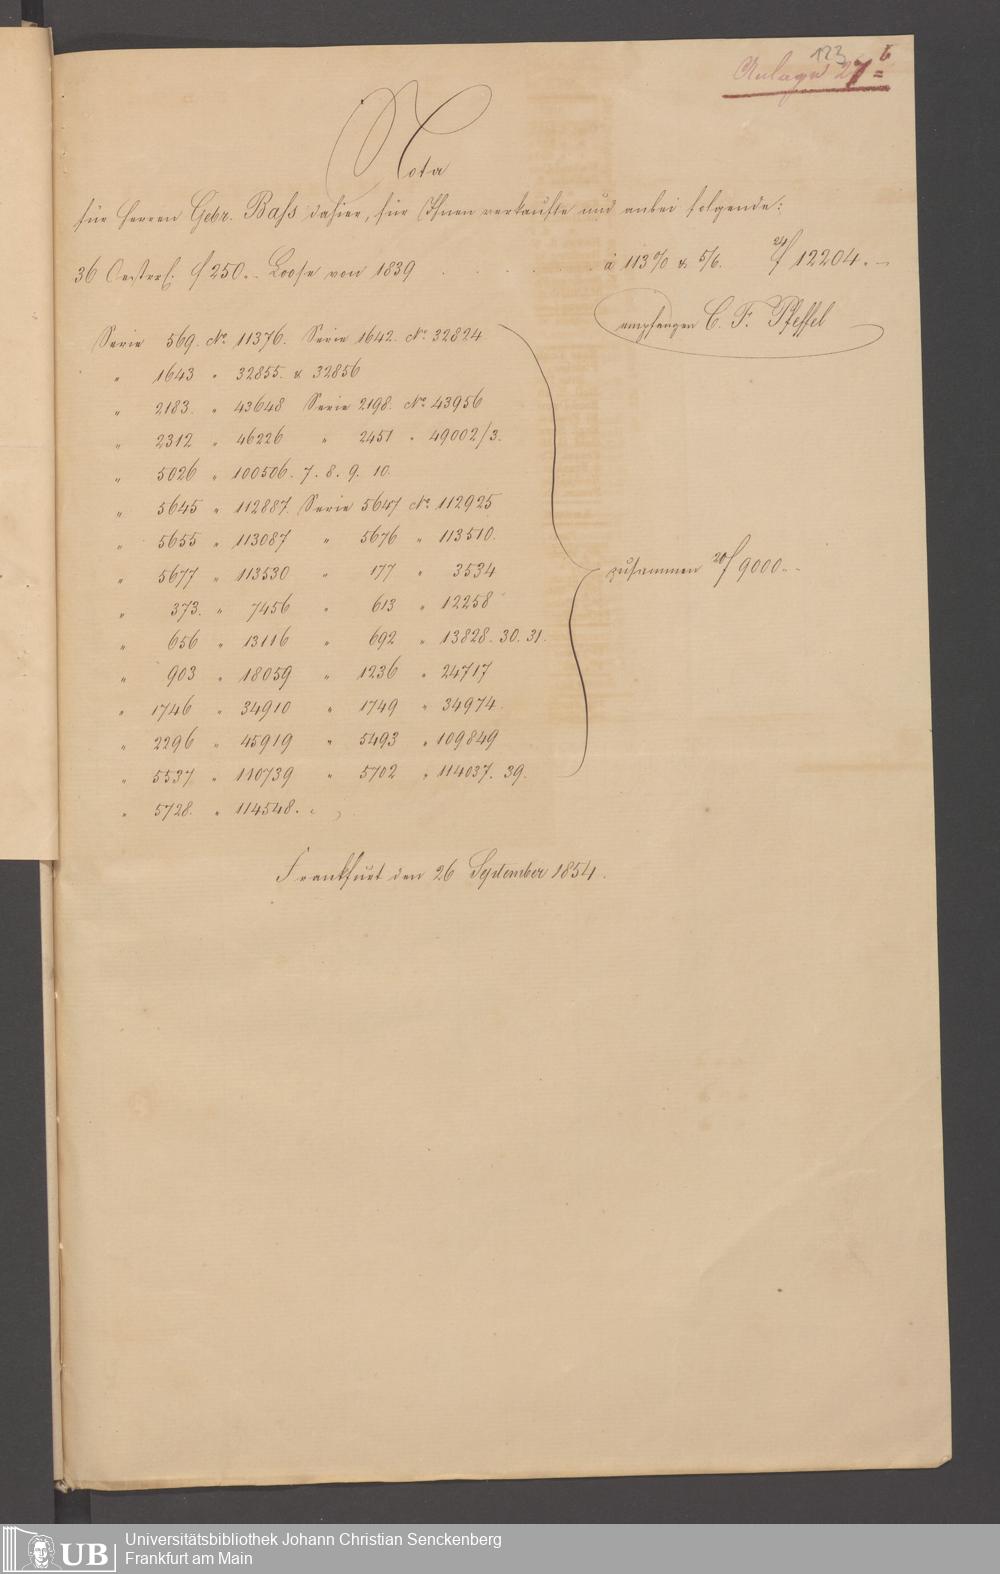 123
Anlage 27 b
Nota
für Herren Gebr. Bass dahier, für Ihnen verkaufte und anbei folgende:
36 Oestrr. f 250.- Loose von 1839 . . . . . à 113% & 5/6. 24/f 12204.-
empfangen C. F. Pfeffel
Serie 569. No 11376. Serie 1642. No 32824
" 1643 " 32855. & 32856
" 2183. " 43648 Serie 2198. No 43956
" 2312 " 46226 " 2451 " 49002/3.
" 5026 " 100506. 7. 8. 9. 10.
" 5645 " 112887. Serie 5647 No 112925
" 5655 " 113087 " 5676 " 113510.
" 5677 " 113530 " 177 " 3534
zusammen 20/f 9000.-
" 373. " 7456 " 613 " 12258
" 656 " 13116 " 692 " 13828. 30. 31.
" 903 " 18059 " 1236 " 24717
" 1746 " 34910 " 1749 " 34974.
" 2296 " 45919 " 5493 " 109849
" 5537 " 110739 " 5702 " 114037. 39.
" 5728. " 114548.
Frankfurt den 26 September 1854.
UB
Universitätsbibliothek Johann Christian Senckenberg
Frankfurt am Main